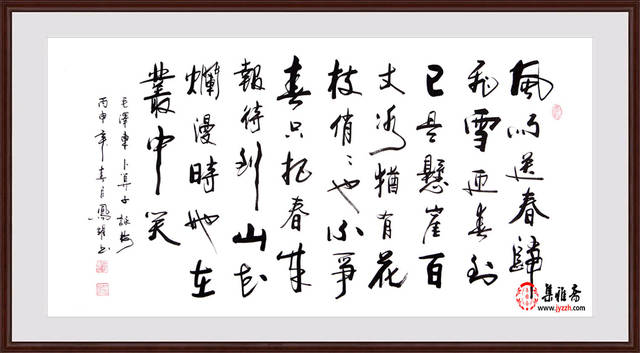 風雨送春歸
飛雪迎春到
已是懸崖百
丈冰猶有花
枝俏〻也不爭
春只把春來
報待到山花
爛漫時她在
叢中笑
毛澤東卜算子詠梅
丙申年春月鳳書
集雅斋
www.jyzzh.com